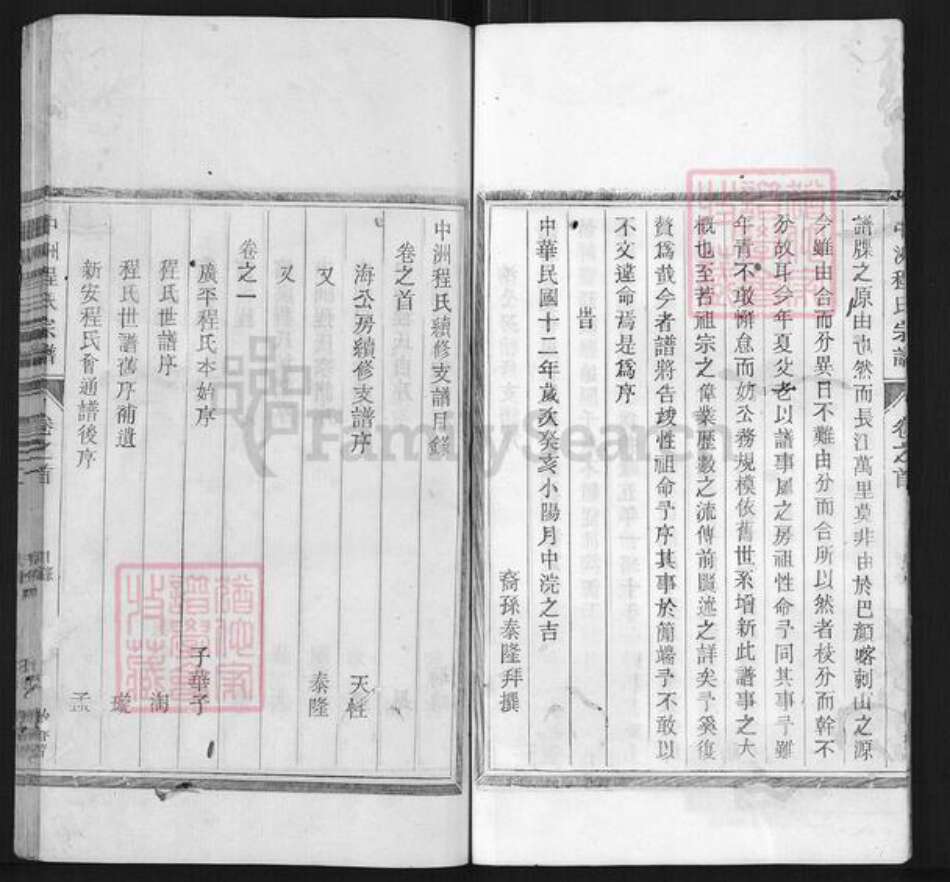 譜牒之原由也然而長江萬里莫非由於巴顏喀剌山之源
今雖由合而分異日不難由分而合所以然者枝分而幹不
分故耳今年夏父老以譜事屬之房祖性命予同其事予雖
年青不敢懈怠而妨公務規模依舊世系增新此譜事之大
概也至若祖宗之偉業歷數之流傳前匾述之詳矣予奚復
贅爲哉今者譜將告竣性祖命予序其事於簡端予不敢以
不文違命焉是爲序
旹
中華民國十二年歲次癸亥小陽月中浣之吉
裔孫泰隆拜撰
中洲程氏宗譜 卷之首
中洲程氏續修支譜目錄
卷之首
海公房續修支譜序 天性
又 泰隆
又
卷之一
廣平程氏本始序 子華子
程氏世譜序 淘
程氏世譜舊序補遺 璇
新安程氏會通譜後序 孟
中洲程氏宗譜 卷之首
FamilySearch